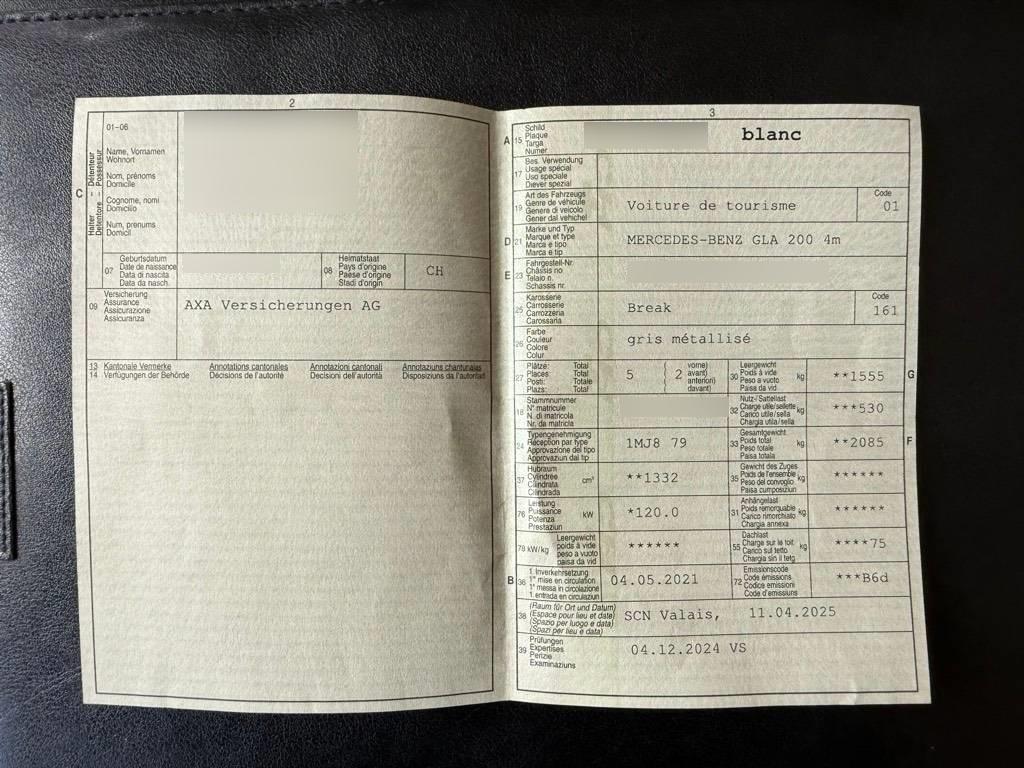 2
01–06
C
Halter – Détenteur
Detentore – Possessur
Name, Vornamen
Wohnort
Nom, prénoms
Domicile
Cognome, nomi
Domicilio
Num, prenums
Domicil
07
Geburtsdatum
Date de naissance
Data di nascita
Data da nasch.
08
Heimatstaat
Pays d'origine
Paese d'origine
Stadi d'origin
CH
09
Versicherung
Assurance
Assicurazione
Assicuranza
AXA Versicherungen AG
13 Kantonale Vermerke Annotations cantonales Annotazioni cantonali Annotaziuns chantunalas
14 Verfügungen der Behörde Décisions de l'autorité Decisioni dell'autorità Disposiziuns da l'autoritad
3
A 15
Schild
Plaque
Targa
Numer
blanc
17
Bes. Verwendung
Usage spécial
Uso speciale
Diever spezial
19
Art des Fahrzeugs
Genre de véhicule
Genere di veicolo
Gener dal vehichel
Voiture de tourisme
Code
01
D 21
Marke und Typ
Marque et type
Marca e tipo
Marca e tip
MERCEDES-BENZ GLA 200 4m
E 23
Fahrgestell-Nr.
Châssis no
Telaio n.
Schassis nr.
25
Karosserie
Carrosserie
Carrozzeria
Carossaria
Break
Code
161
26
Farbe
Couleur
Colore
Colur
gris métallisé
27
Plätze: Total
Places: Total
Posti: Totale
Plazs: Total
5
2
vorne)
avant)
anteriori)
davant)
30
Leergewicht
Poids à vide
Peso a vuoto
Paisa da vid
kg
**1555
G
18
Stammnummer
N° matricule
N. di matricola
Nr. da matricla
32
Nutz-/Sattellast
Charge utile/sellette
Carico utile/sella
Chargia utila/sella
kg
***530
24
Typengenehmigung
Réception par type
Approvazione del tipo
Approvaziun dal tip
1MJ8 79
33
Gesamtgewicht
Poids total
Peso totale
Paisa totala
kg
**2085
F
37
Hubraum
Cylindrée
Cilindrata
Cilindrada
cm³
**1332
35
Gewicht des Zuges
Poids de l'ensemble
Peso del convoglio
Paisa cumposiziun
kg
******
76
Leistung
Puissance
Potenza
Prestaziun
kW
*120.0
31
Anhängelast
Poids remorquable
Carico rimorchiato
Chargia annexa
kg
******
78 kW/kg
Leergewicht
poids à vide
peso a vuoto
paisa da vid
******
55
Dachlast
Charge sur le toit
Carico sul tetto
Chargia sin il tetg
kg
****75
B 36
1. Inverkehrsetzung
1re mise en circulation
1a messa in circolazione
1. entrada en circulaziun
04.05.2021
72
Emissionscode
Code émissions
Codice emissioni
Code d'emissiuns
***B6d
38
(Raum für Ort und Datum)
(Espace pour lieu et date)
(Spazio per luogo e data)
(Spazi per lieu e data)
SCN Valais, 11.04.2025
39
Prüfungen
Expertises
Perizie
Examinaziuns
04.12.2024 VS